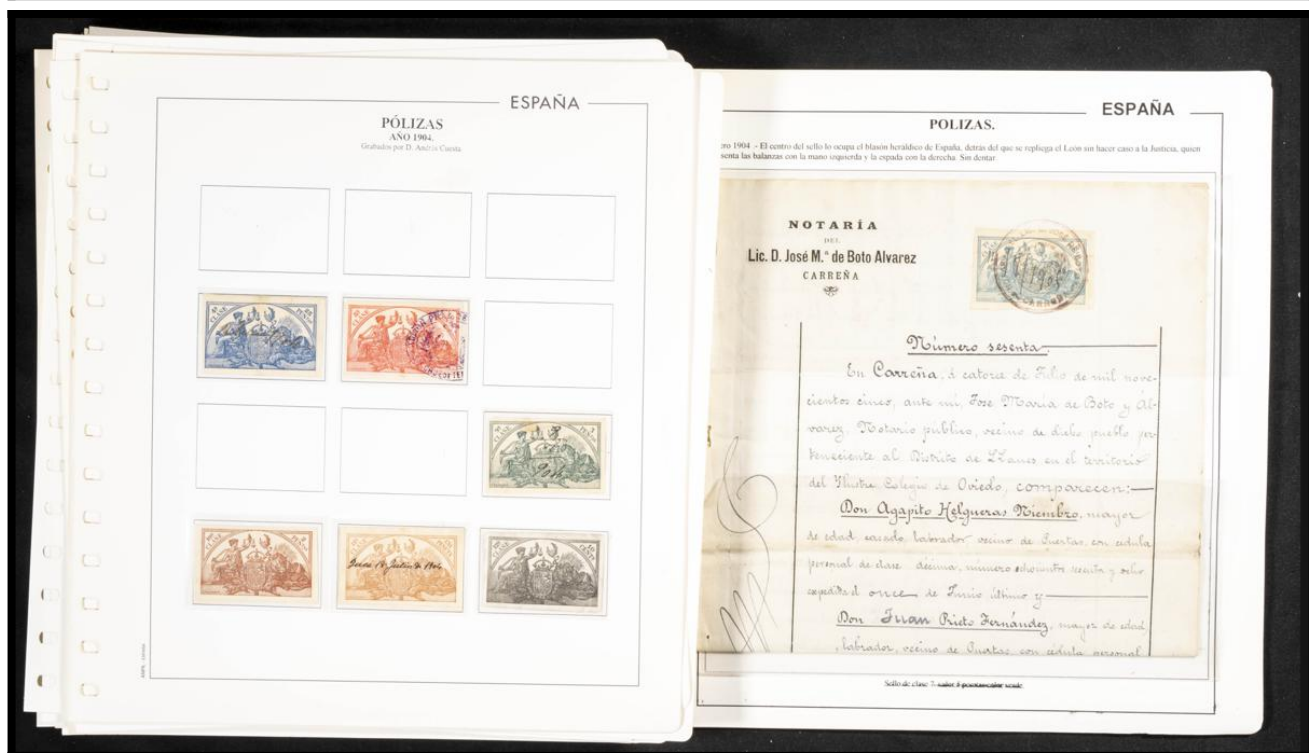 ESPAÑA
PÓLIZAS
AÑO 1904.
Grabados por D. Andrés Cuesta
CLASE
CLASE
CLASE
CLASE
CLASE
CLASE
ESPAÑA
POLIZAS.
ero 1904 .- El centro del sello lo ocupa el blasón heráldico de España, detrás del que se repliega el León sin hacer caso a la Justicia, quien
senta las balanzas con la mano izquierda y la espada con la derecha. Sin dentar
NOTARÍA
DEL
Lic. D. José M.ª de Boto Alvarez
CARREÑA
Número sesenta.
En Carreña, á catorce de Julio de mil nove-
cientos cinco, ante mí, José María de Boto y Ál-
varez, Notario público, vecino de dicho pueblo, per-
teneciente al Distrito de Llanes en el territorio
del Ilustre Colegio de Oviedo, comparecen:
Don Agapito Helgueras Niembro, mayor
de edad, casado, labrador vecino de Puertas, con cédula
personal de clase décima, número ochocientos sesenta y ocho
expedida el once de Junio último y
Don Juan Prieto Fernández, mayor de edad,
labrador, vecino de Puertas, con cédula personal
Sello de clase 7, valor 5 pesetas color verde